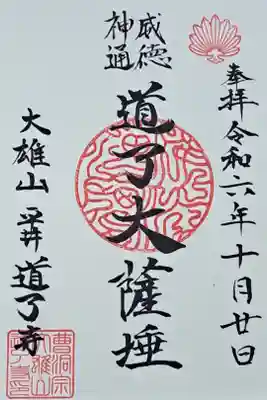 奉拝 令和六年十月廿日
威徳
神通
道了大薩埵
大雄山 道了寺
曹洞宗
大雄山